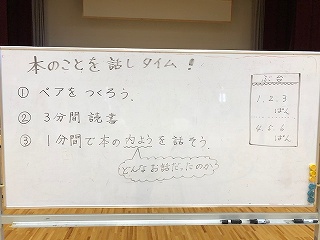 本のことを話しタイム!
① ペアをつくろう.
② 3分間 読書
③ 1分間で本の内ようを話そう.
どんなお話だったのか
ぶ台
1.2.3
ぱん
4.5.6
ぱん